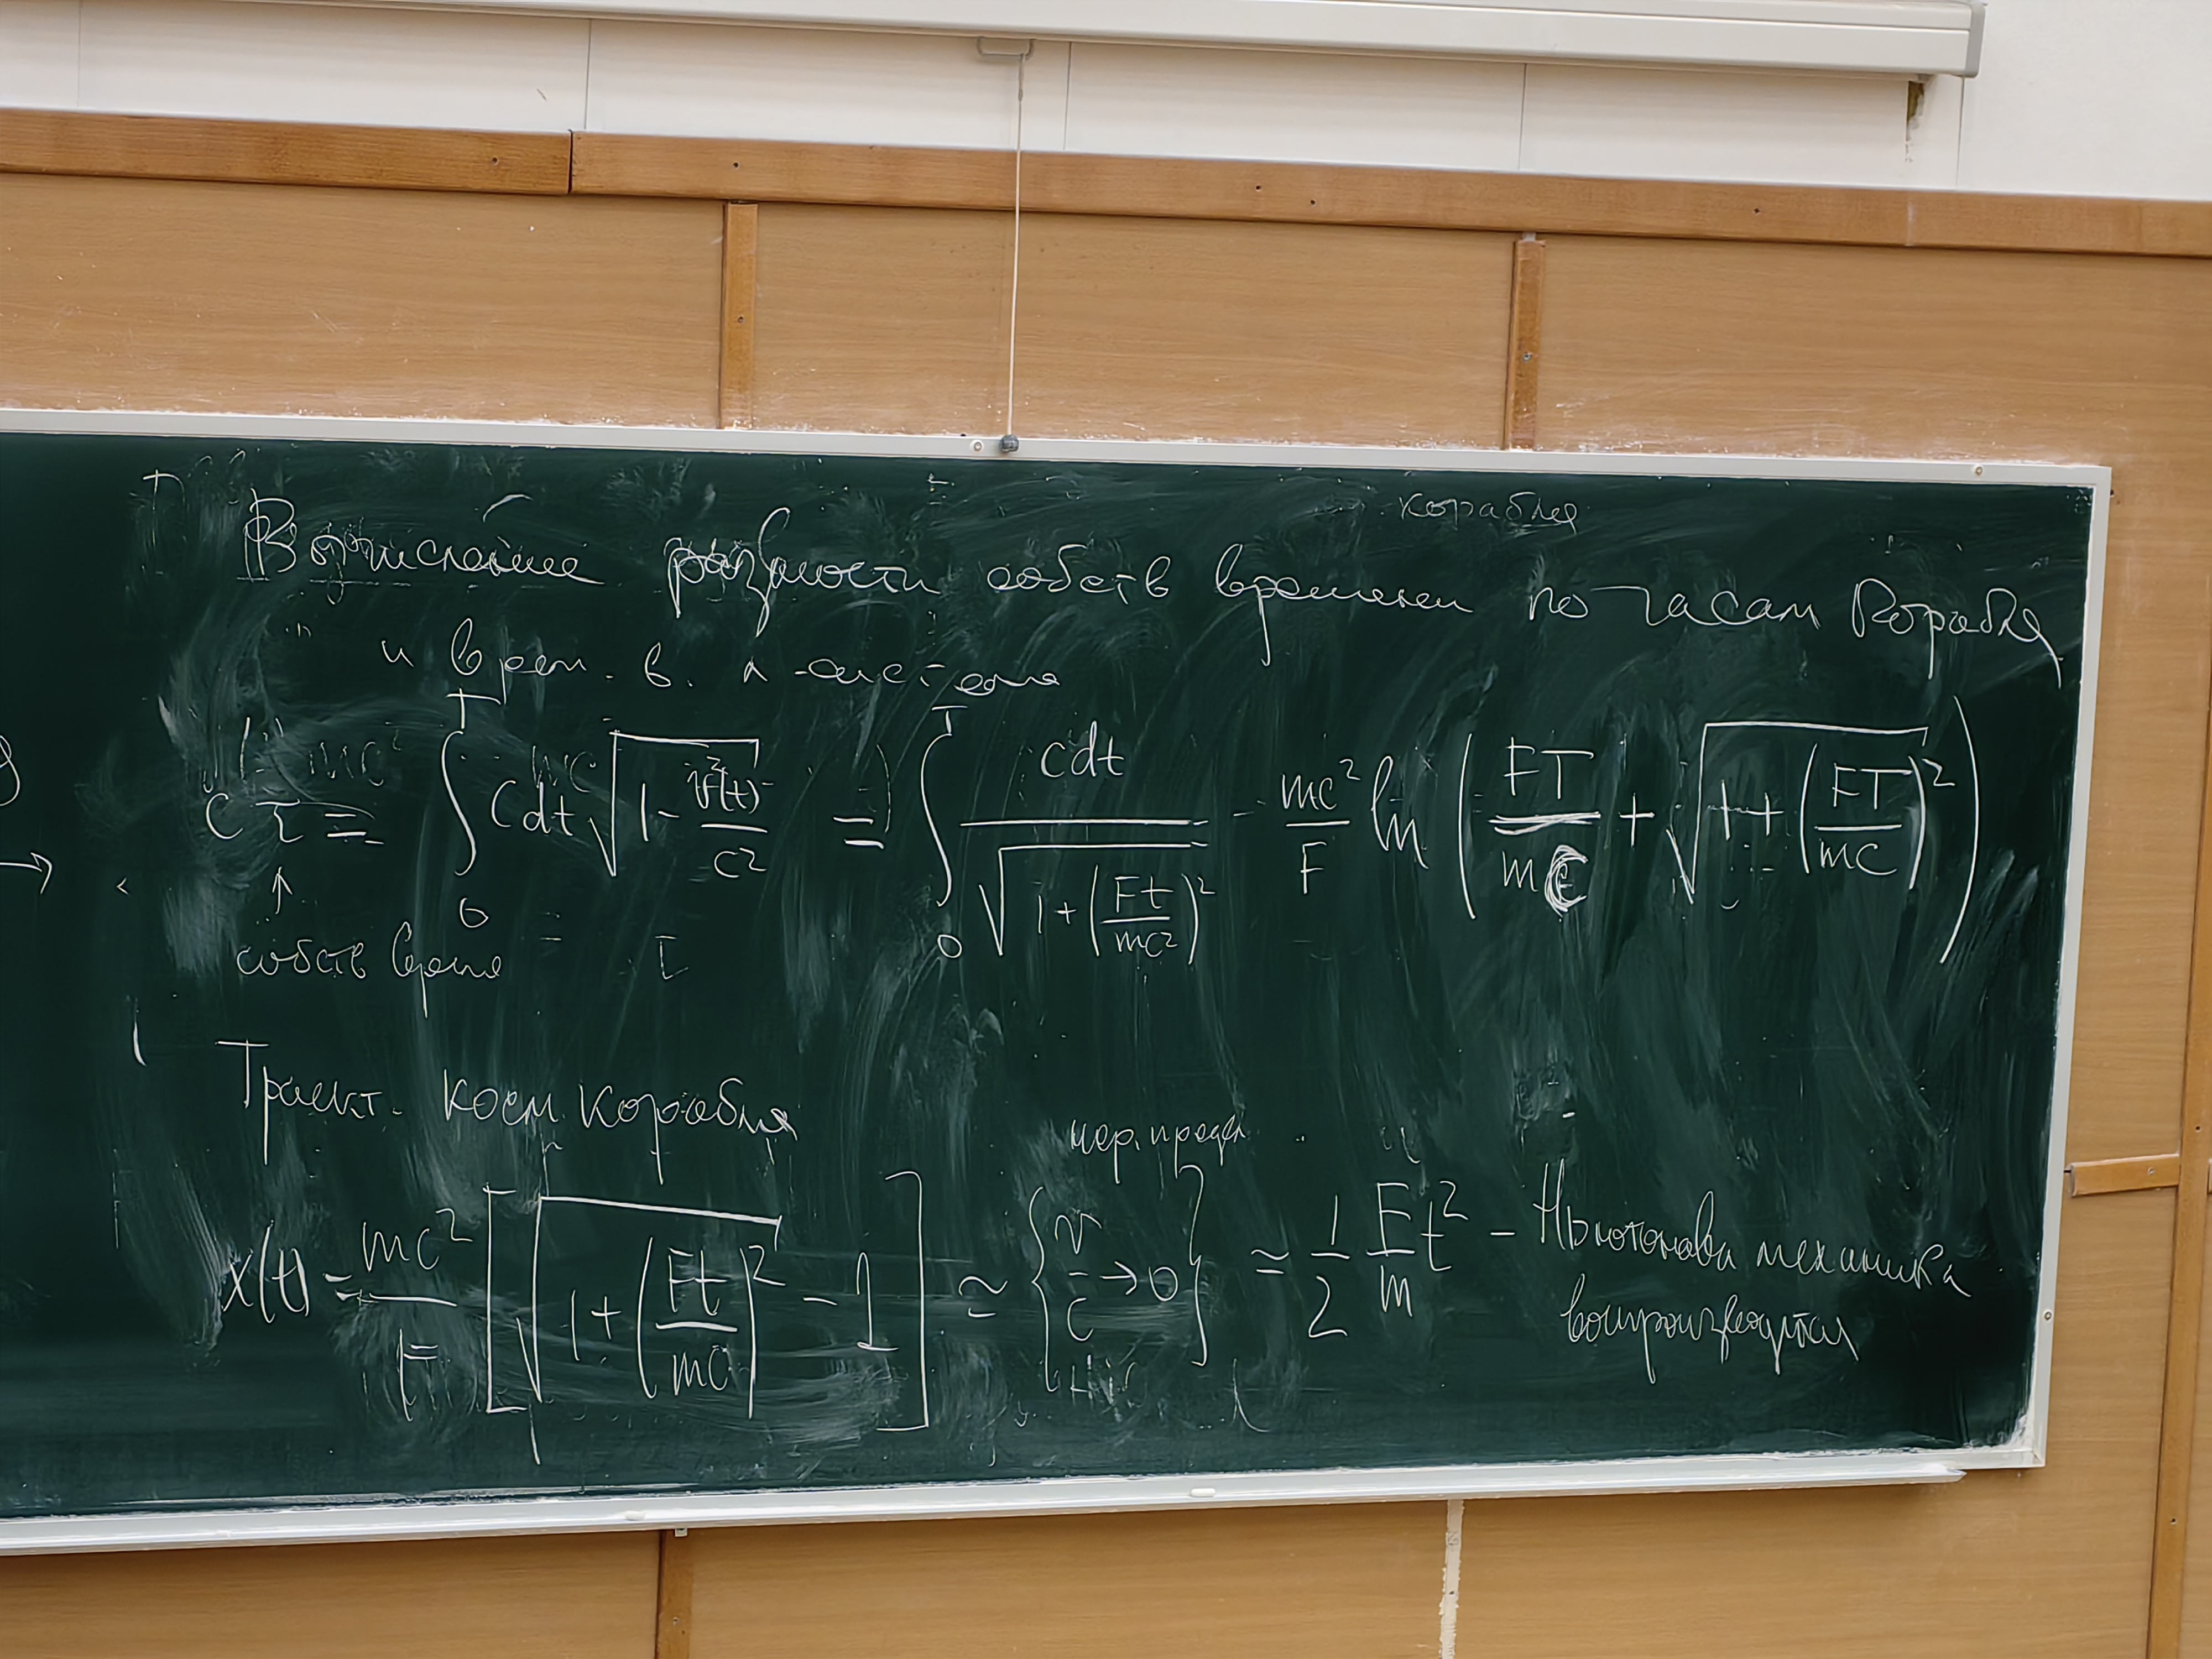 корабля
Вычисление разности собств времени по часам корабля
и врем. в. л-системе
cτ ≡ ∫₀ᵀ cdt √(1 - v²(t)/c²) = ∫₀ᵀ cdt / √(1 + (Ft/mc²)²) = mc²/F ln (FT/mc + √(1 + (FT/mc)²))
↑
собств время
Траект. косм. корабля
нер. предел
x(t) = mc²/F [√(1 + (Ft/mc)²) - 1] ≃ {v/c → 0} ≃ 1/2 F/m t² - Ньютонова механика
воспроизводится